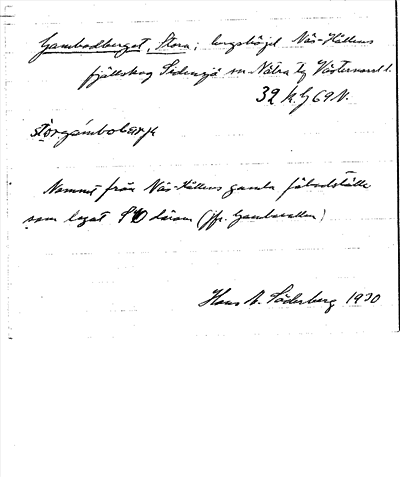 Gambodberget, Stora; bergshöjd Näs-Hällens
fjällskog Sidensjö sn. Nätra tg Västernorrl. l.
32 k. g 69 N.
Näs-Hällens gamla fäbodställe
som legat SO därom (jfr. Gambovallen)
Hans A. Söderberg 1930